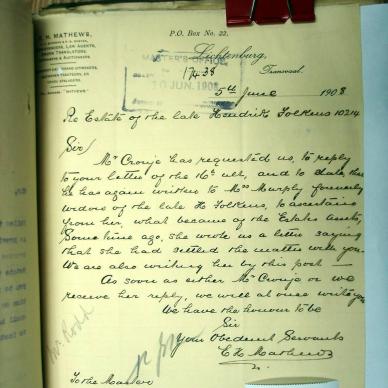 H. MATHEWS,
P.O. Box No. 22,
Lichtenburg,
Transvaal.
MASTER'S OFFICE
17438
10 JUN. 1908
5th June 1908
Re Estate of the late Hendrik Folkens 10214
Sir
Mr Cronje has requested us, to reply
to your letter of the 16th ult, and to state, that
he has again written to Mrs Murphy formerly
widow of the late H. Folkens, to ascertain
from her, what became of the Estates assets,
Some time ago, she wrote us a letter saying
that she had settled the matter with you.
We are also writing her by this post
As soon as either Mr Cronje or we
receive her reply, we will at once write you
We have the honour to be
Sir
Your Obedient Servants
E H Mathews
To the Master